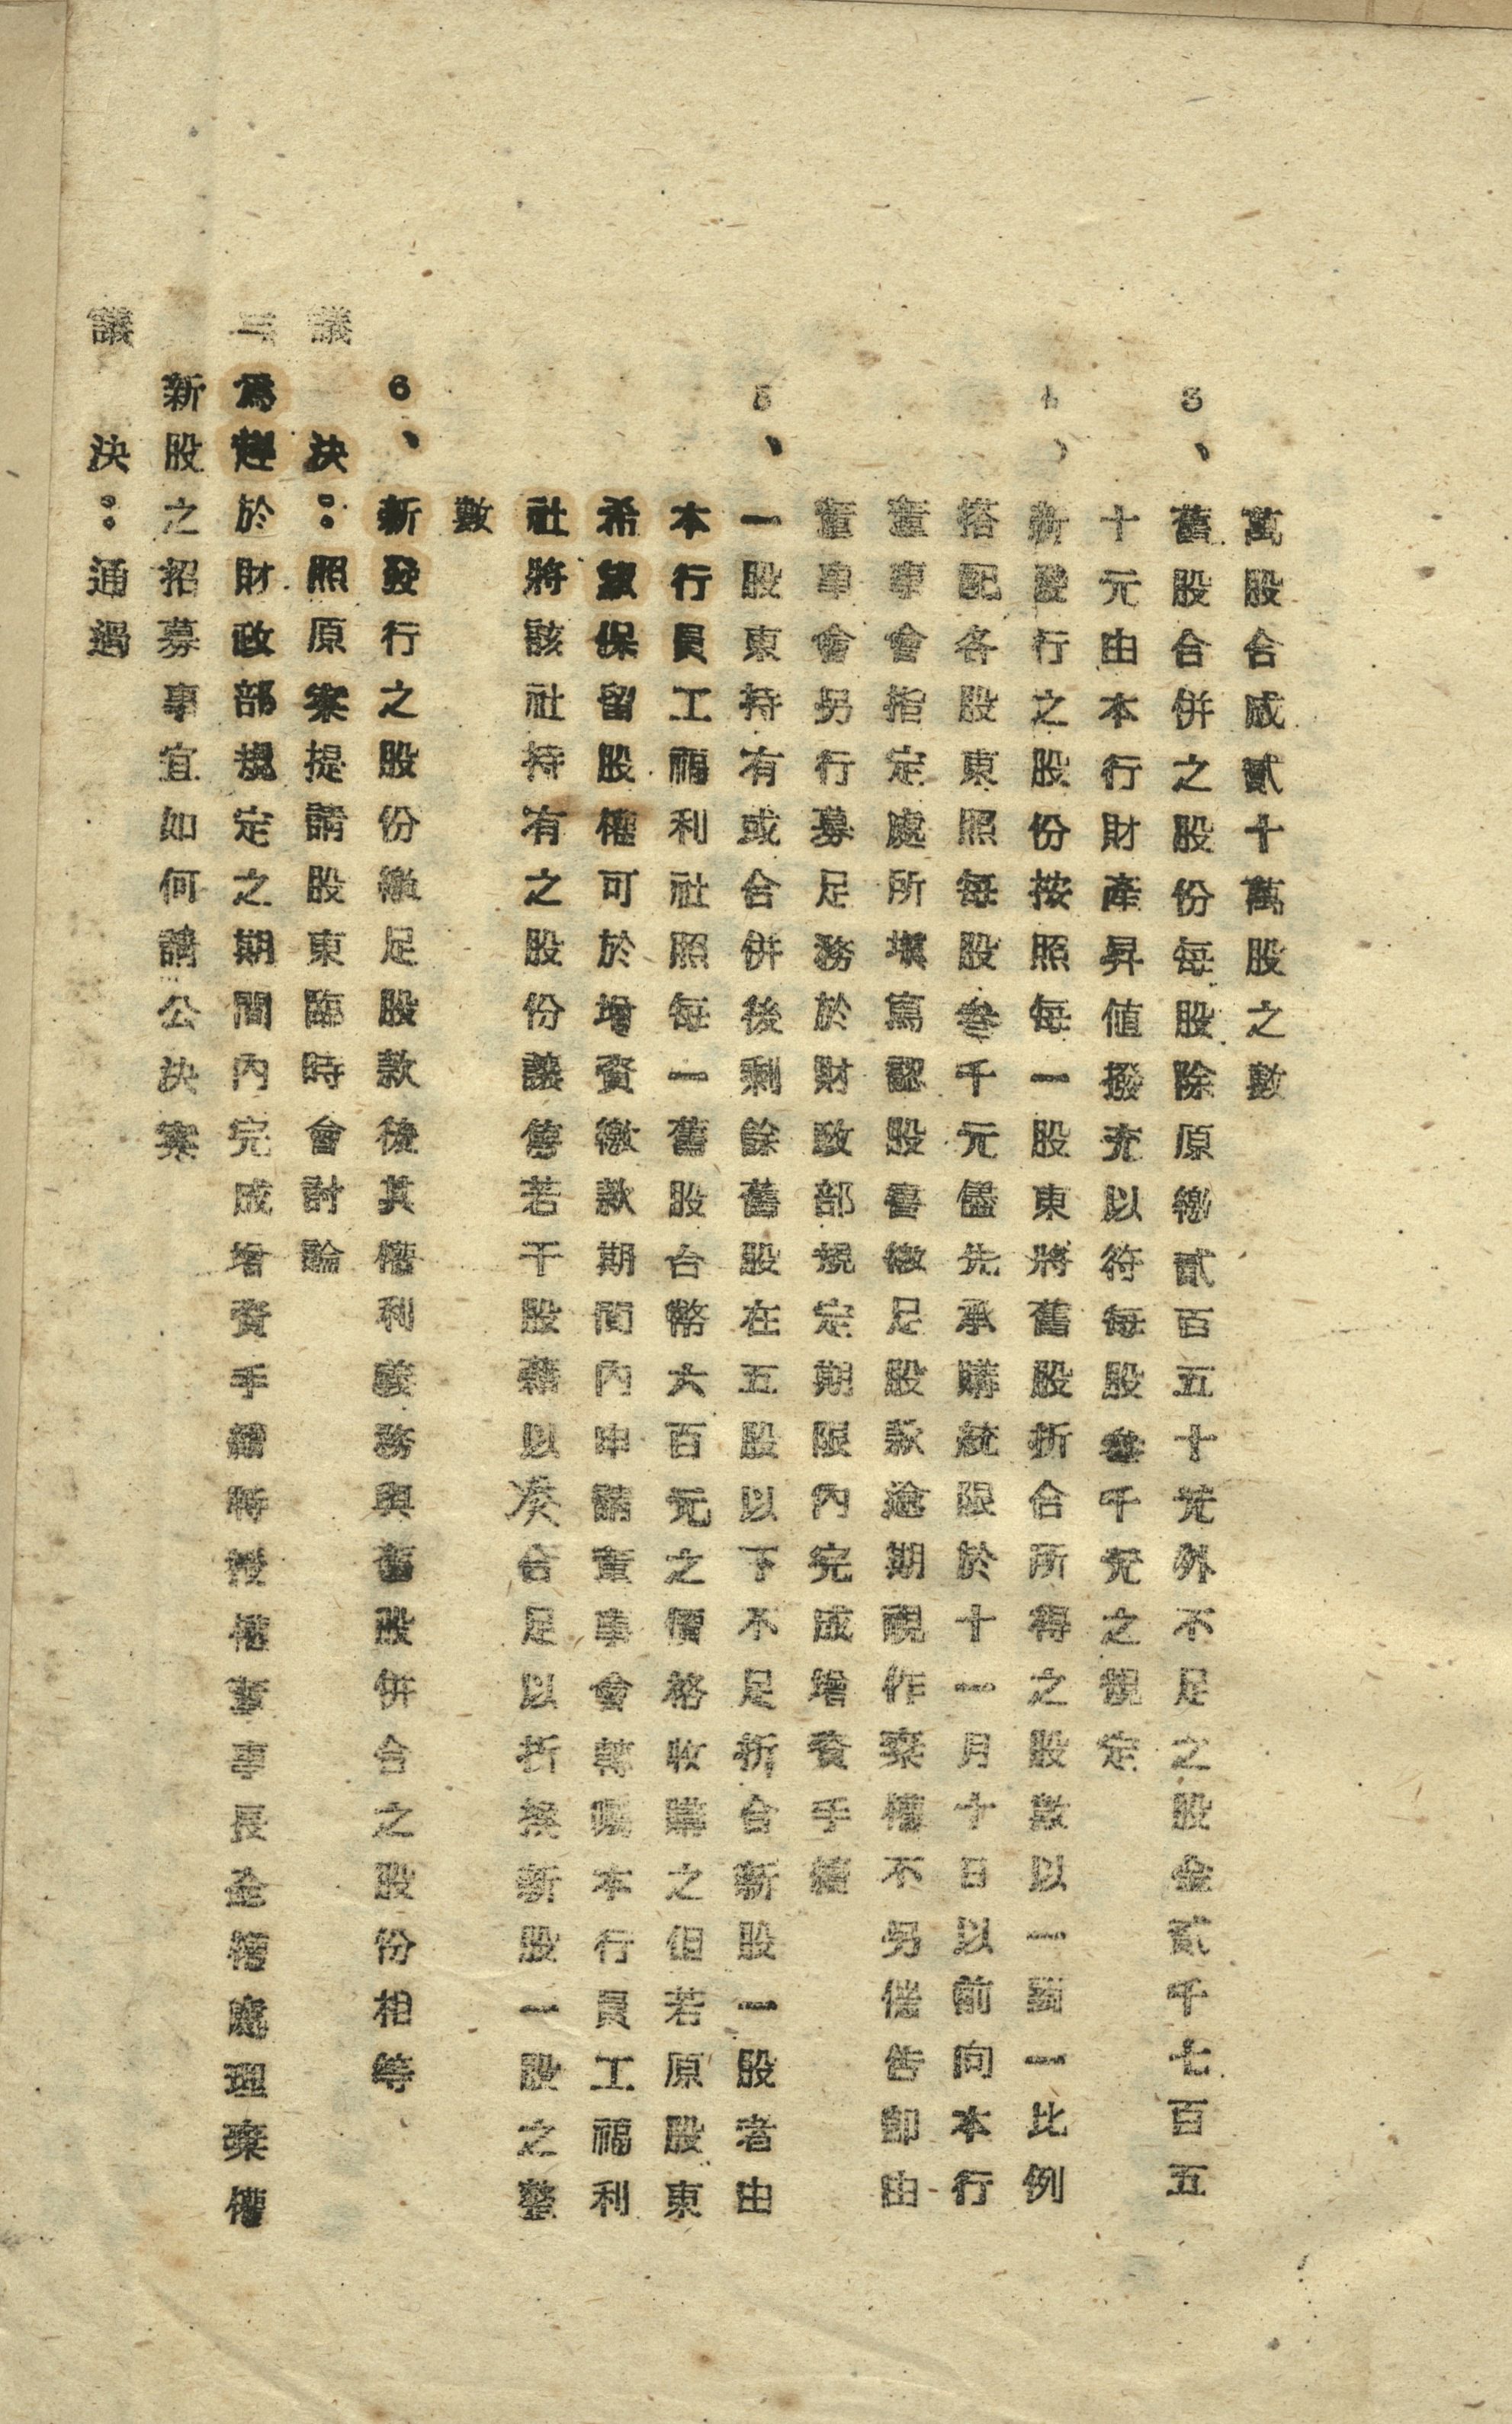 萬股合成貳十萬股之數
3、舊股合併之股份每股除原繳貳百五十元外不足之股金貳千七百五
十元由本行財產昇值撥充以符每股叁千元之規定
4、新發行之股份按照每一股東將舊股折合所得之股數以一與一比例
搭配各股東照每股叁千元儘先承購統限於十一月十日以前向本行
董事會指定處所填寫認股書繳足股款逾期視作棄權不另催告即由
董事會另行募足務於財政部規定期限內完成增資手續
5、一股東持有或合併後剩餘舊股在五股以下不足折合新股一股者由
本行員工福利社照每一舊股台幣六百元之價格收購之但若原股東
希望保留股權可於增資繳款期間內申請董事會轉囑本行員工福利
社將該社持有之股份讓售若干股藉以湊合足以折換新股一股之整
數
6、新發行之股份繳足股款後其權利義務與舊股併合之股份相等
議　決：照原案提請股東臨時會討論
三為趕於財政部規定之期間內完成增資手續將授權董事長全權處理棄權
新股之招募事宜如何請公決案
議　決：通過